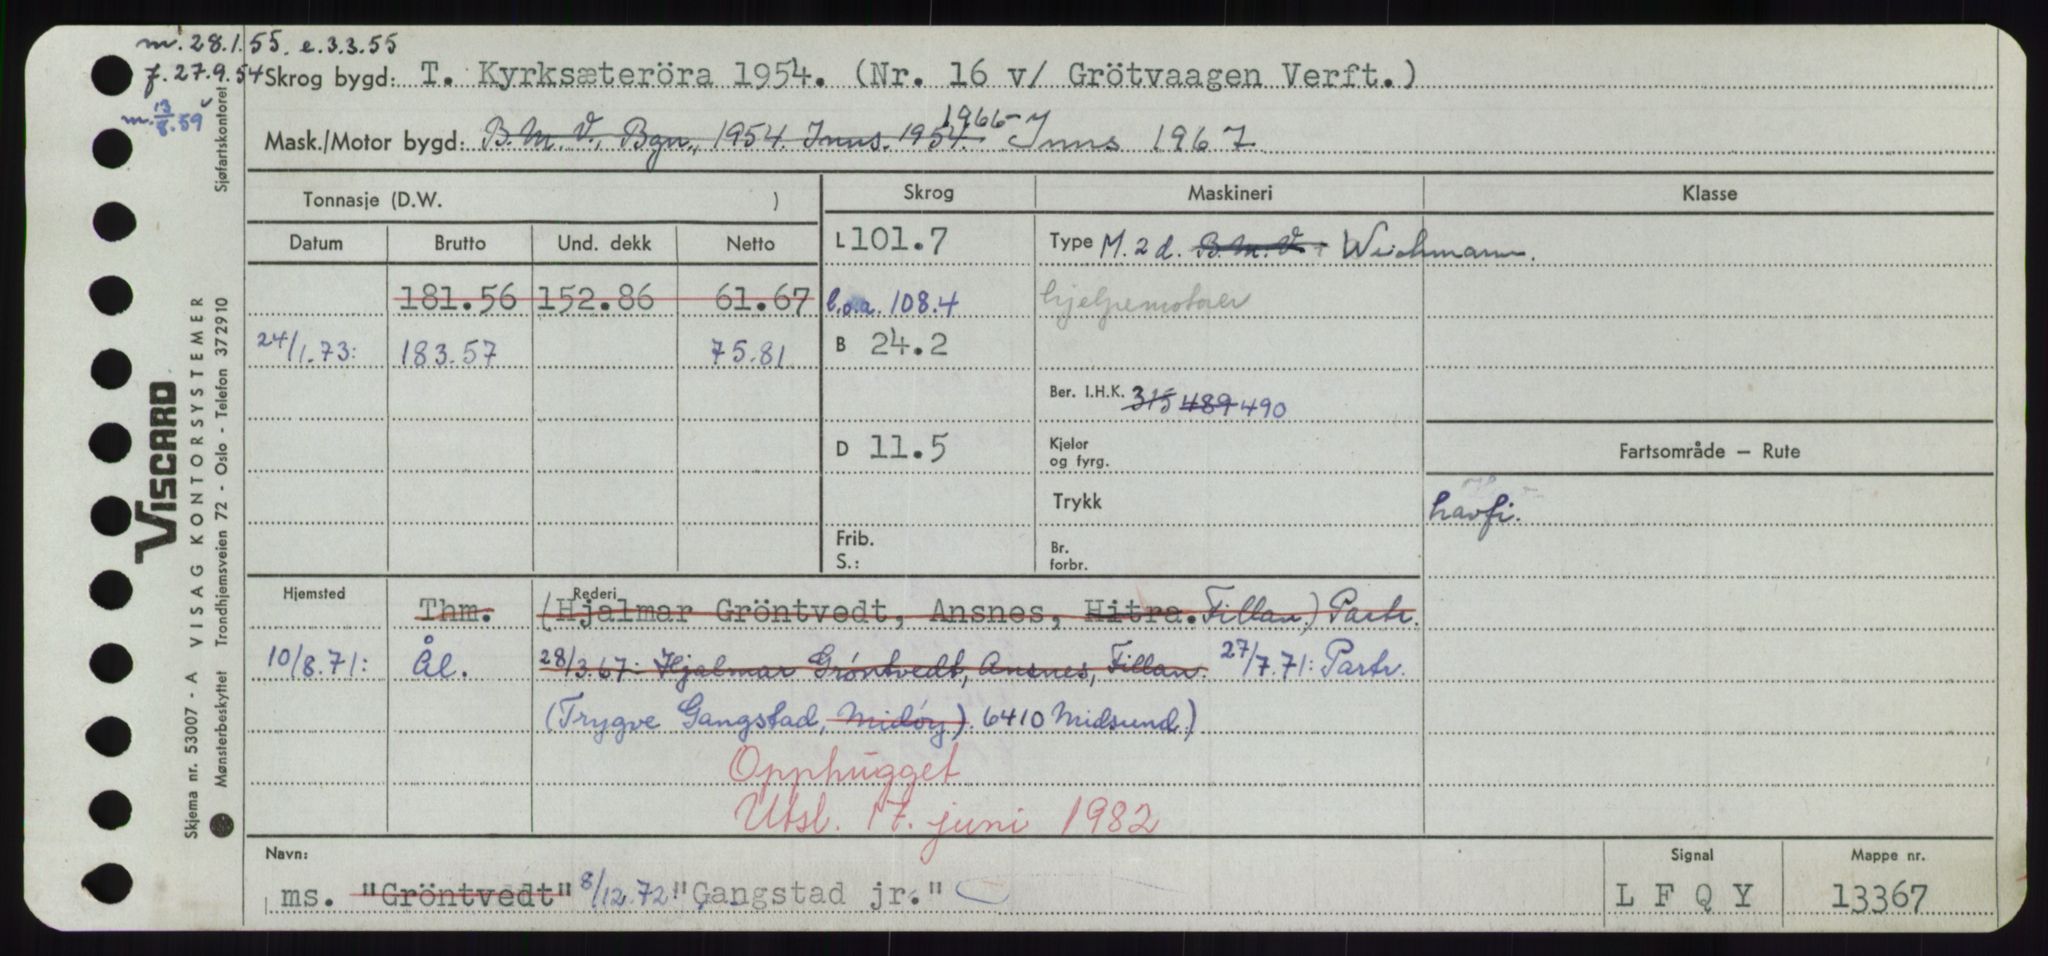 m. 28.1.55. e. 3.3.55
f. 27.9.54 Skrog bygd: T. Kyrksæteröra 1954. (Nr. 16 v/ Grötvaagen Verft.)
m. 13/8.59
Mask./Motor bygd: B.M.V., Bgn., 1954. Inns. 1954. 1966- Inns 1967
Sjøfartskontoret
Tonnasje (D.W. ) Skrog Maskineri Klasse
Datum Brutto Und. dekk Netto L 101.7 Type M. 2 d. B.M.V. Wichmann.
181.56 152.86 61.67 l.o.a. 108.4 hjelpemotorer
24/1.73: 183.57 75.81 B 24.2
Ber. I.H.K. 315 489 490
D 11.5 Kjelor og fyrg. Fartsområde – Rute
Trykk havfi.
Frib. S.: Br. forbr.
Hjemsted Rederi
Thm. (Hjalmar Gröntvedt, Ansnes, Hitra. Fillan.) Partr.
10/8.71: Ål. 28/3.67: Hjalmar Gröntvedt, Ansnes, Fillan. 27/7.71: Partr.
(Trygve Gangstad, Midöy). 6410 Midsund.)
Opphugget
Utsl. 17. juni 1982
Navn: Signal Mappe nr.
ms. "Gröntvedt" 8/12.72: "Gangstad jr." L F Q Y 13367
VISCARD
Skjema nr. 53007 - A VISAG KONTORSYSTEMER
Mønsterbeskyttet Trondhjemsveien 72 - Oslo - Telefon 372910